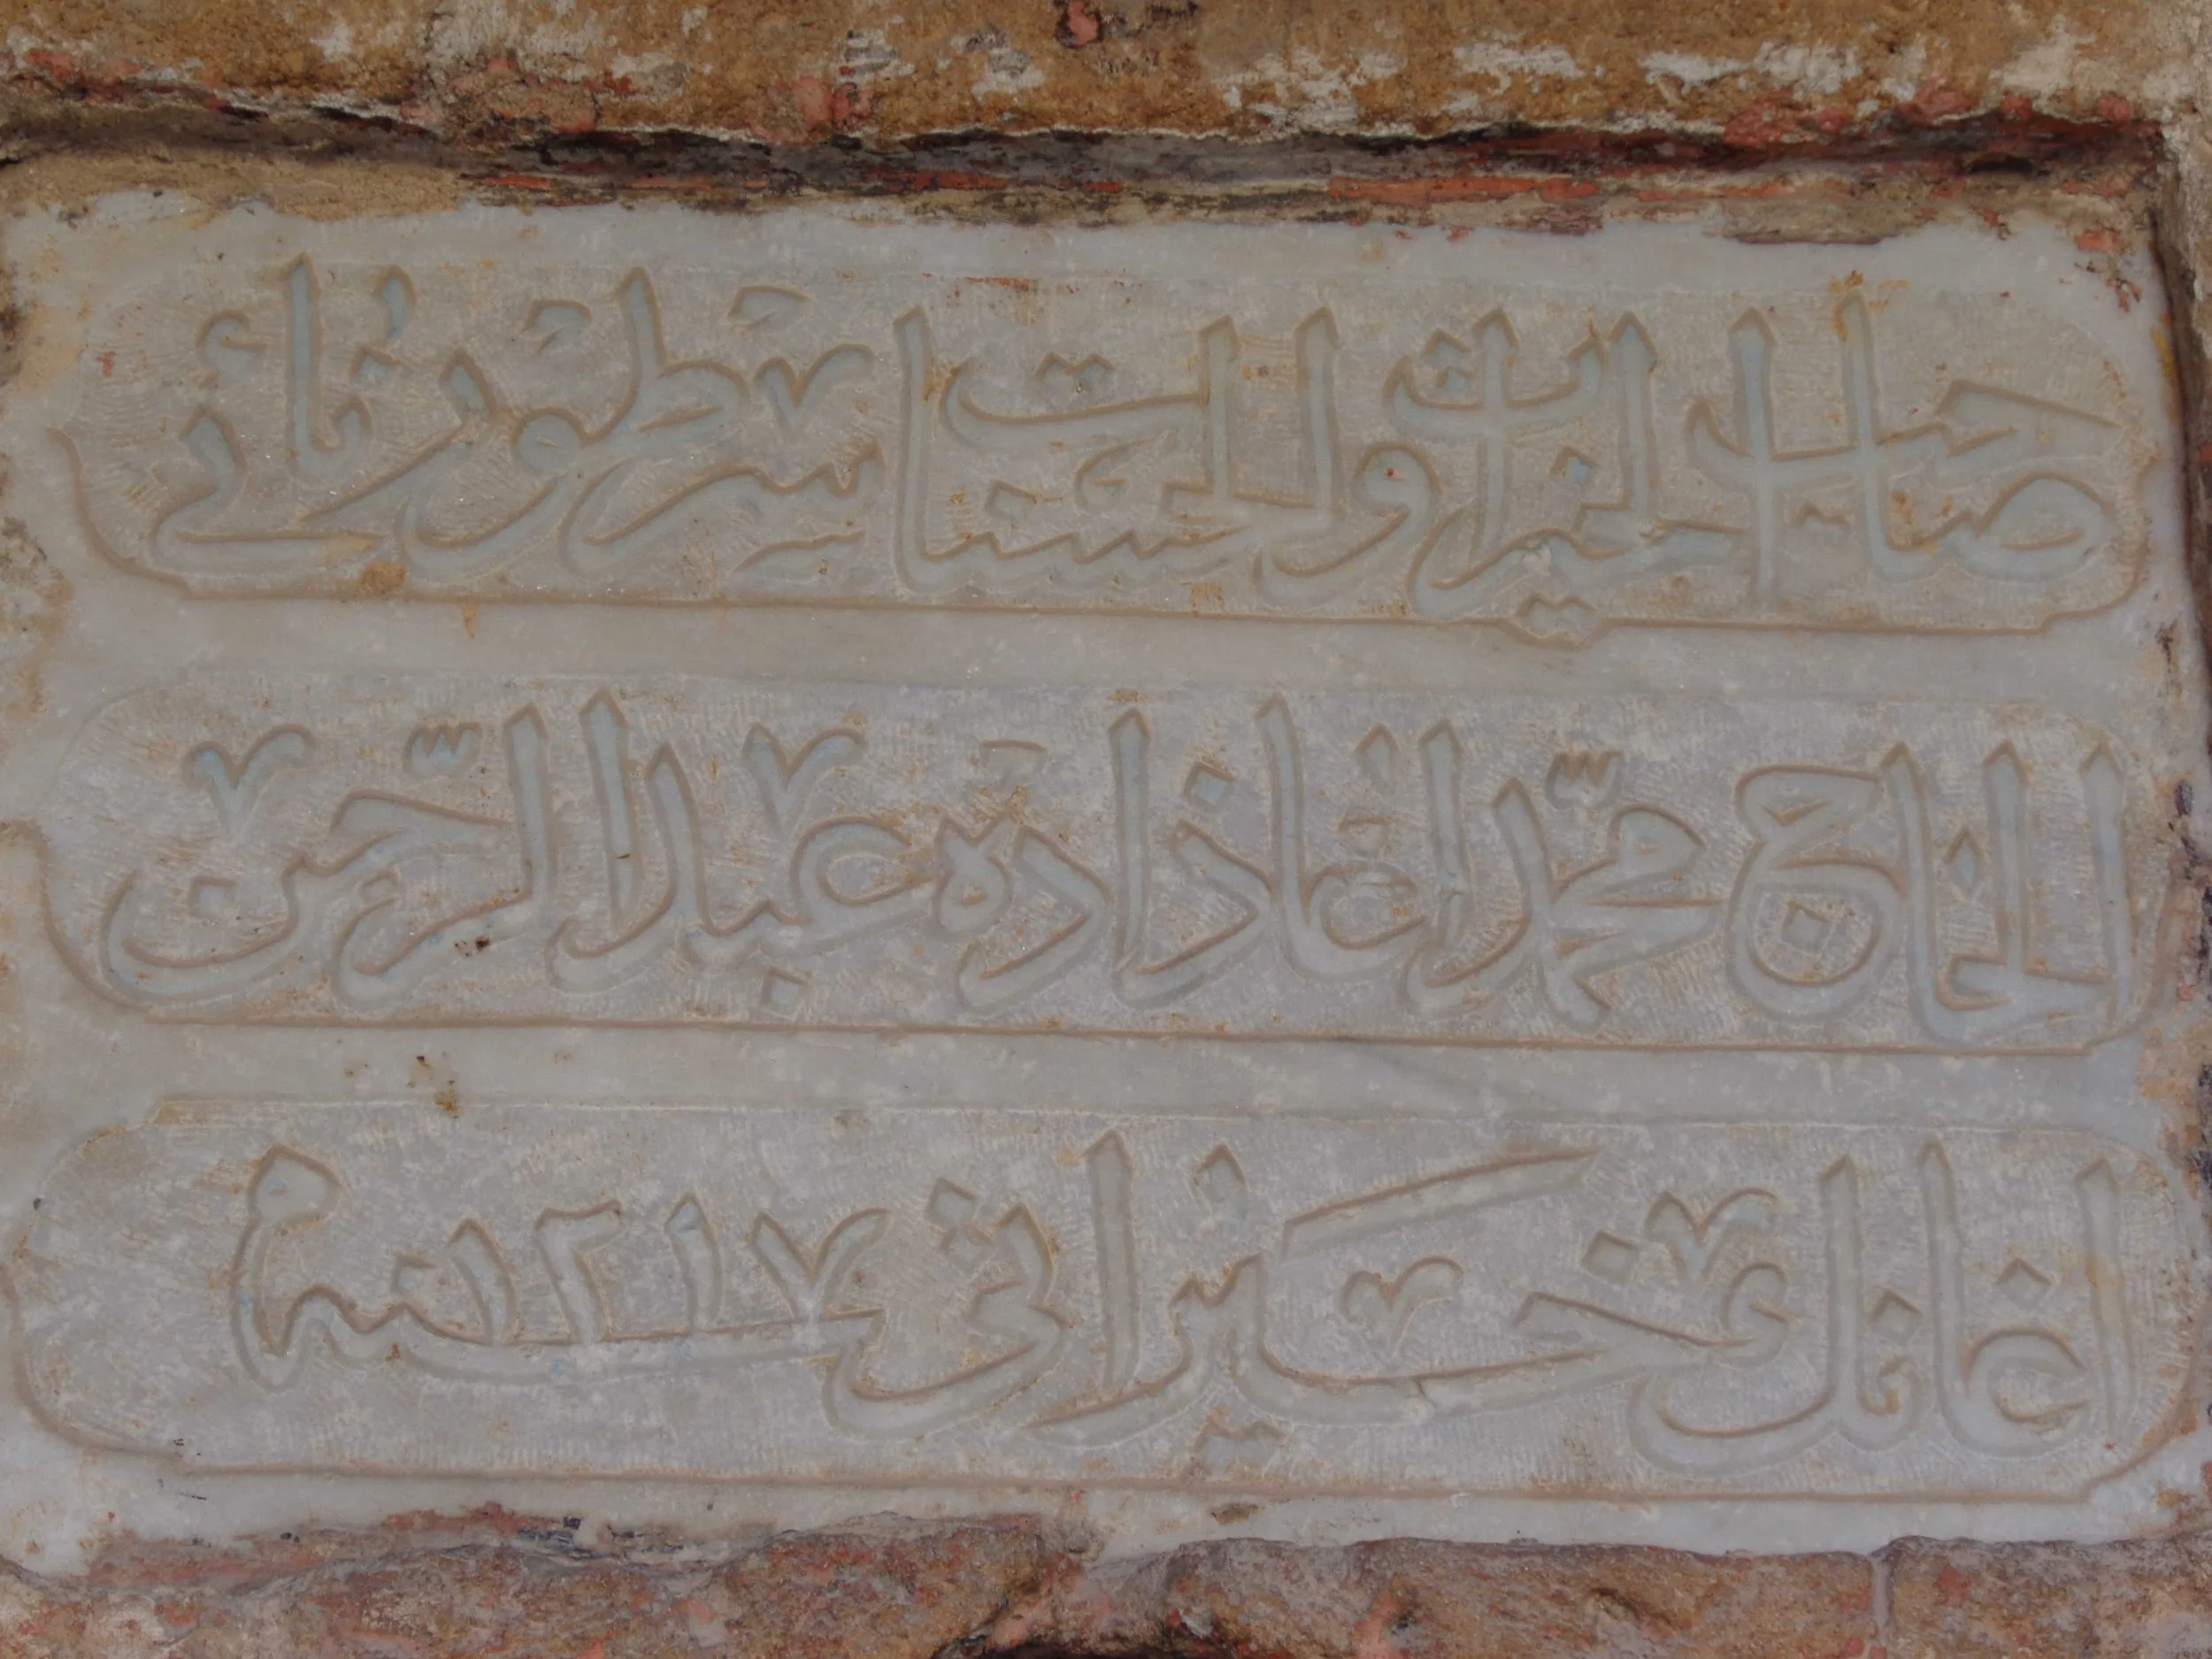 صاحب الخيرات والحسنات سرطورنائى
الحاج محمد اغا زاده عبد الرحمن
اغانك خيراتى سنه ١٢١٧